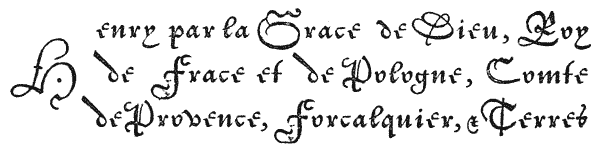 Henry par la Grace de Dieu, Roy
de Frace et de Pologne, Comte
de Provence, Forcalquier, & Terres